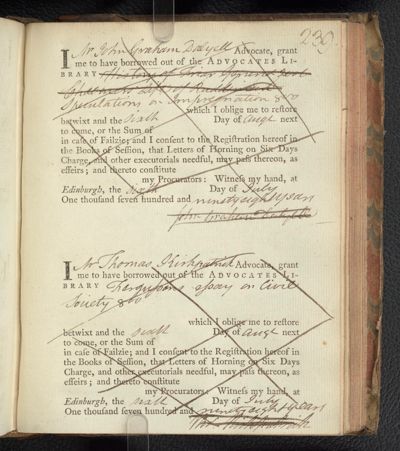 230
I Mr John Graham Dalyell Advocate, grant
me to have borrowed out of the ADVOCATES LI-
BRARY
Speculations on Impregnation &c
which I oblige me to restore
betwixt and the sixth Day of Augt next
to come, or the Sum of
in case of Failzie; and I consent to the Registration hereof in
the Books of Session, that Letters of Horning on Six Days
Charge, and other executorials needful, may pass thereon, as
effeirs; and thereto constitute
my Procurators: Witness my hand, at
Edinburgh, the sixth Day of July
One thousand seven hundred and ninety eight years
John Graham Dalyell
I Mr Thomas Kirkpatrick Advocate, grant
me to have borrowed out of the ADVOCATES LI-
BRARY Fergussons essay on Civil
Society &c
which I oblige me to restore
betwixt and the sixth Day of Augt next
to come, or the Sum of
in case of Failzie; and I consent to the Registration hereof in
the Books of Session, that Letters of Horning on Six Days
Charge, and other executorials needful, may pass thereon, as
effeirs; and thereto constitute
my Procurators: Witness my hand, at
Edinburgh, the sixth Day of July
One thousand seven hundred and ninety eight years
Kirkpatrick